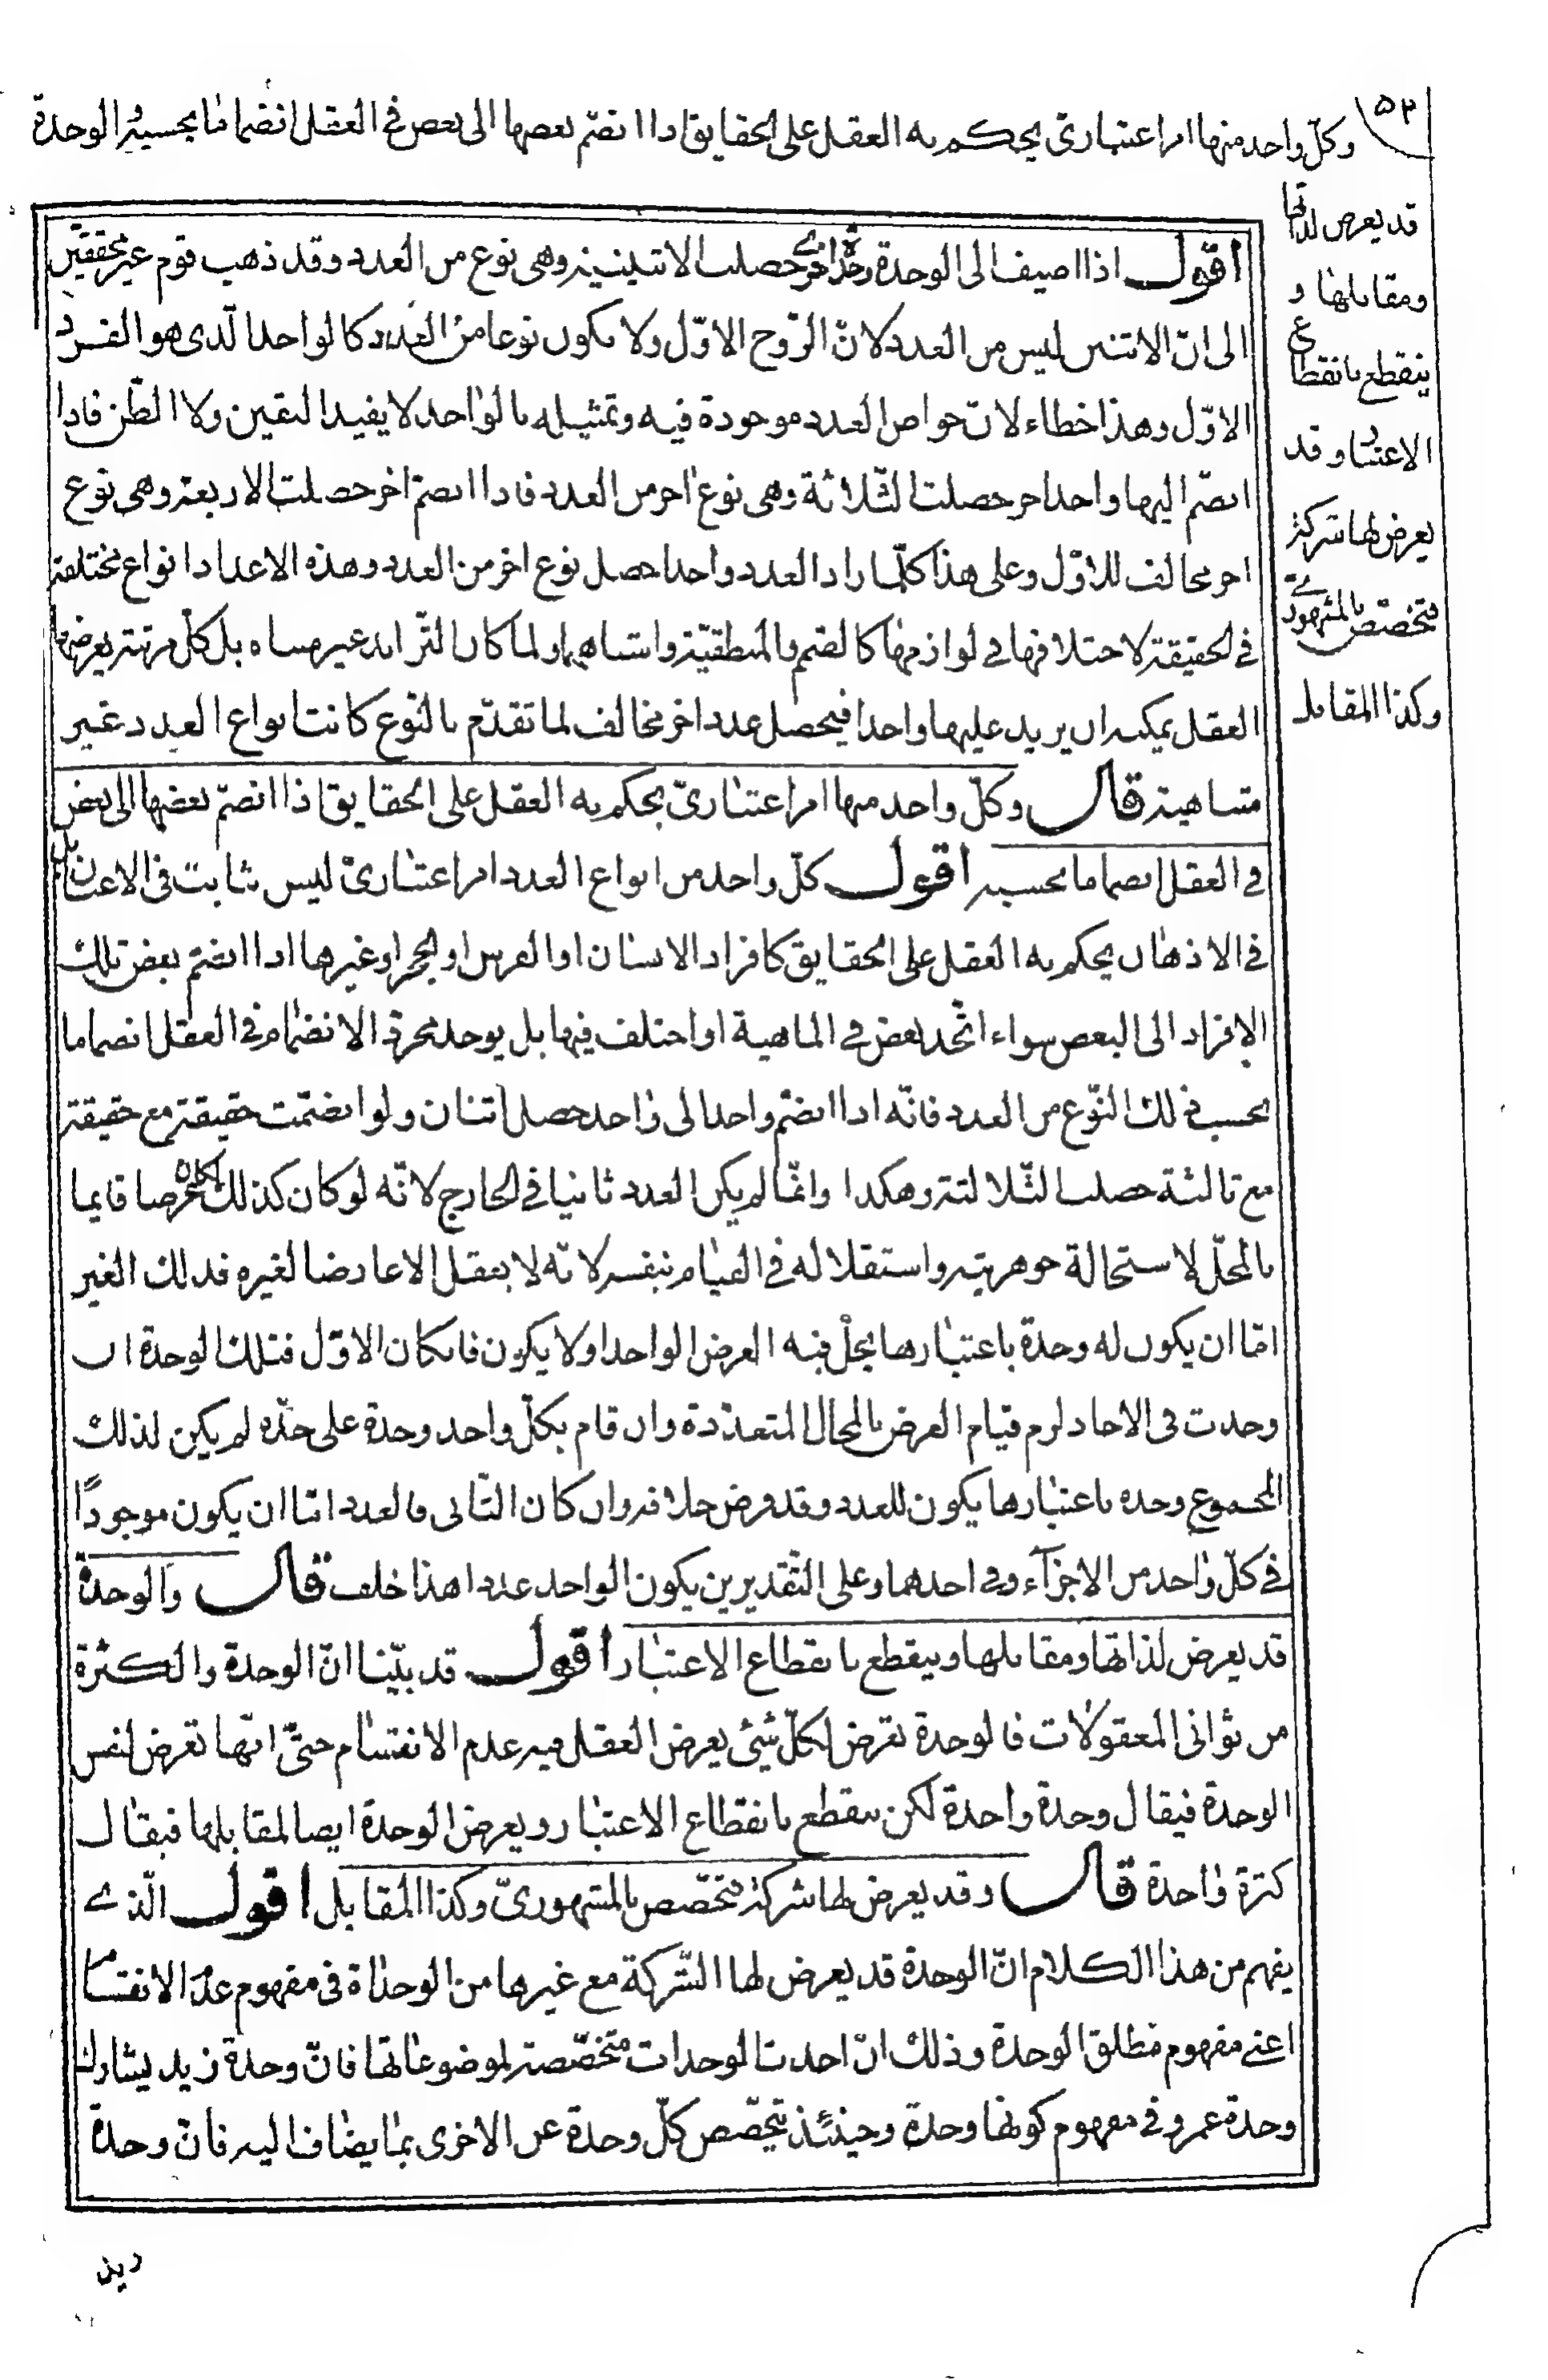 ٥٣
وكلّ واحد منها امر اعتباريّ يحكم به العقل على الحقايق اذا انضمّ بعضها الى بعض في العقل انضماما بحسبه والوحدة
قد يعرض لذاتها
ومقابلها و
ينقطع بانقطاع
الاعتبار وقد
يعرض لها شركة
فتخصّص بالمشهوري
وكذا المقابل
اقول اذا اضيف الى الوحدة وحدة اخرى حصلت الاثنينية وهى نوع من العدد وقد ذهب قوم غير محققين
الى انّ الاثنين ليس من العدد لانّ الزّوج الاوّل ولا يكون نوعا من العدد كالواحد الّذى هو الفرد
الاوّل وهذا خطاء لانّ خواص العدد موجودة فيه وتمثيله بالواحد لا يفيد اليقين ولا الظّن فاذا
انضمّ اليها واحد اخر حصلت الثّلاثة وهى نوع اخر من العدد فاذا انضمّ اخر حصلت الاربعة وهى نوع
اخر مخالف للاوّل وعلى هذا كلّما زاد العدد واحدا حصل نوع اخر من العدد وهذه الاعداد انواع مختلفة
في الحقيقة لاختلافها في لوازمها كالصّم والمنطقيّة واشباههما ولما كان التّزايد غير متناه بل كلّ مرتبة يعرضها
العقل يمكنه ان يزيد عليها واحدا فيحصل عدد اخر مخالف لما تقدّم بالنّوع كانت انواع العدد غير
متناهية قال وكلّ واحد منها امر اعتباريّ يحكم به العقل على الحقايق اذا انضمّ بعضها الى بعض
في العقل انضماما بحسبه اقول كلّ واحد من انواع العدد امر اعتباريّ ليس بثابت في الاعيان بل
في الاذهان يحكم به العقل على الحقايق كافراد الانسان او الفرس او الحجر او غيرها اذا انضمّ بعض تلك
الافراد الى البعض سواء اتّحد بعض في الماهية او اختلف فيها بل يوخذ مجرّد الانضمام في العقل انضماما
بحسب ذلك النّوع من العدد فانّه اذا انضمّ واحد الى واحد حصل اثنان ولو انضمّت حقيقة مع حقيقة
مع ثالثة حصلت الثّلاثة وهكذا وانّما لم يكن العدد ثابتا في الخارج لانّه لو كان كذلك لكان عرضا قايما
بالمحلّ لاستحالة جوهريته واستقلاله في القيام بنفسه لانّه لا يعقل الا عارضا لغيره فذلك الغير
امّا ان يكون له وحدة باعتبارها يحلّ فيه العرض الواحد او لا يكون فان كان الاوّل فتلك الوحدة ان
وجدت في الاحاد لزم قيام العرض بالمحال المتعدّدة وان قام بكلّ واحد وحدة على حدّه لم يكن لذلك
المجموع وحده باعتبارها يكون للعدد وقد فرض خلافه وان كان الثّانى فالعدد امّا ان يكون موجودًا
في كلّ واحد من الاجزآء وفى احدهما وعلى التّقديرين يكون الواحد عددا هذا خلف قال والوحدة
قد يعرض لذاتها ومقابلها وينقطع بانقطاع الاعتبار اقول قد بيّنا انّ الوحدة والكثرة
من ثوانى المعقولات فالوحدة تعرض لكلّ شيئ يعرض العقل فيه عدم الانقسام حتّى انّها تعرض لنفس
الوحدة فيقال وحدة واحدة لكن ينقطع بانقطاع الاعتبار ويعرض الوحدة ايضا لمقابلها فيقال
كثرة واحدة قال وقد يعرض لها شركة فتخصّص بالمشهوريّ وكذا المقابل اقول الّذي
يفهم من هذا الكلام انّ الوحدة قد يعرض لها الشّركة مع غيرها من الوحداة في مفهوم عدم الانقسام
اعني مفهوم مطلق الوحدة وذلك انّ احدت الوحدات متخصّصة لموضوعاتها فانّ وحدة زيد يشارك
وحدة عمرو في مفهوم كونها وحدة وحينئذ تتخصّص كلّ وحدة عن الاخرى بما يضاف اليه فانّ وحدة
زيد